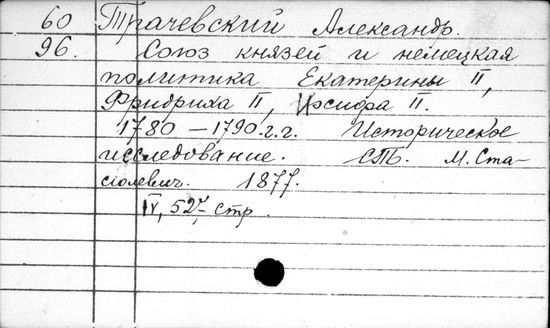 60 Трачевский Александъ.
96. Союз князей и немецкая
политика Екатерины II,
Фридриха II, Иосифа II.
1780 – 1790.г.г. Историческое
исследование. СПб. М. Ста-
сюлевич. 1877.
IV, 527 стр.